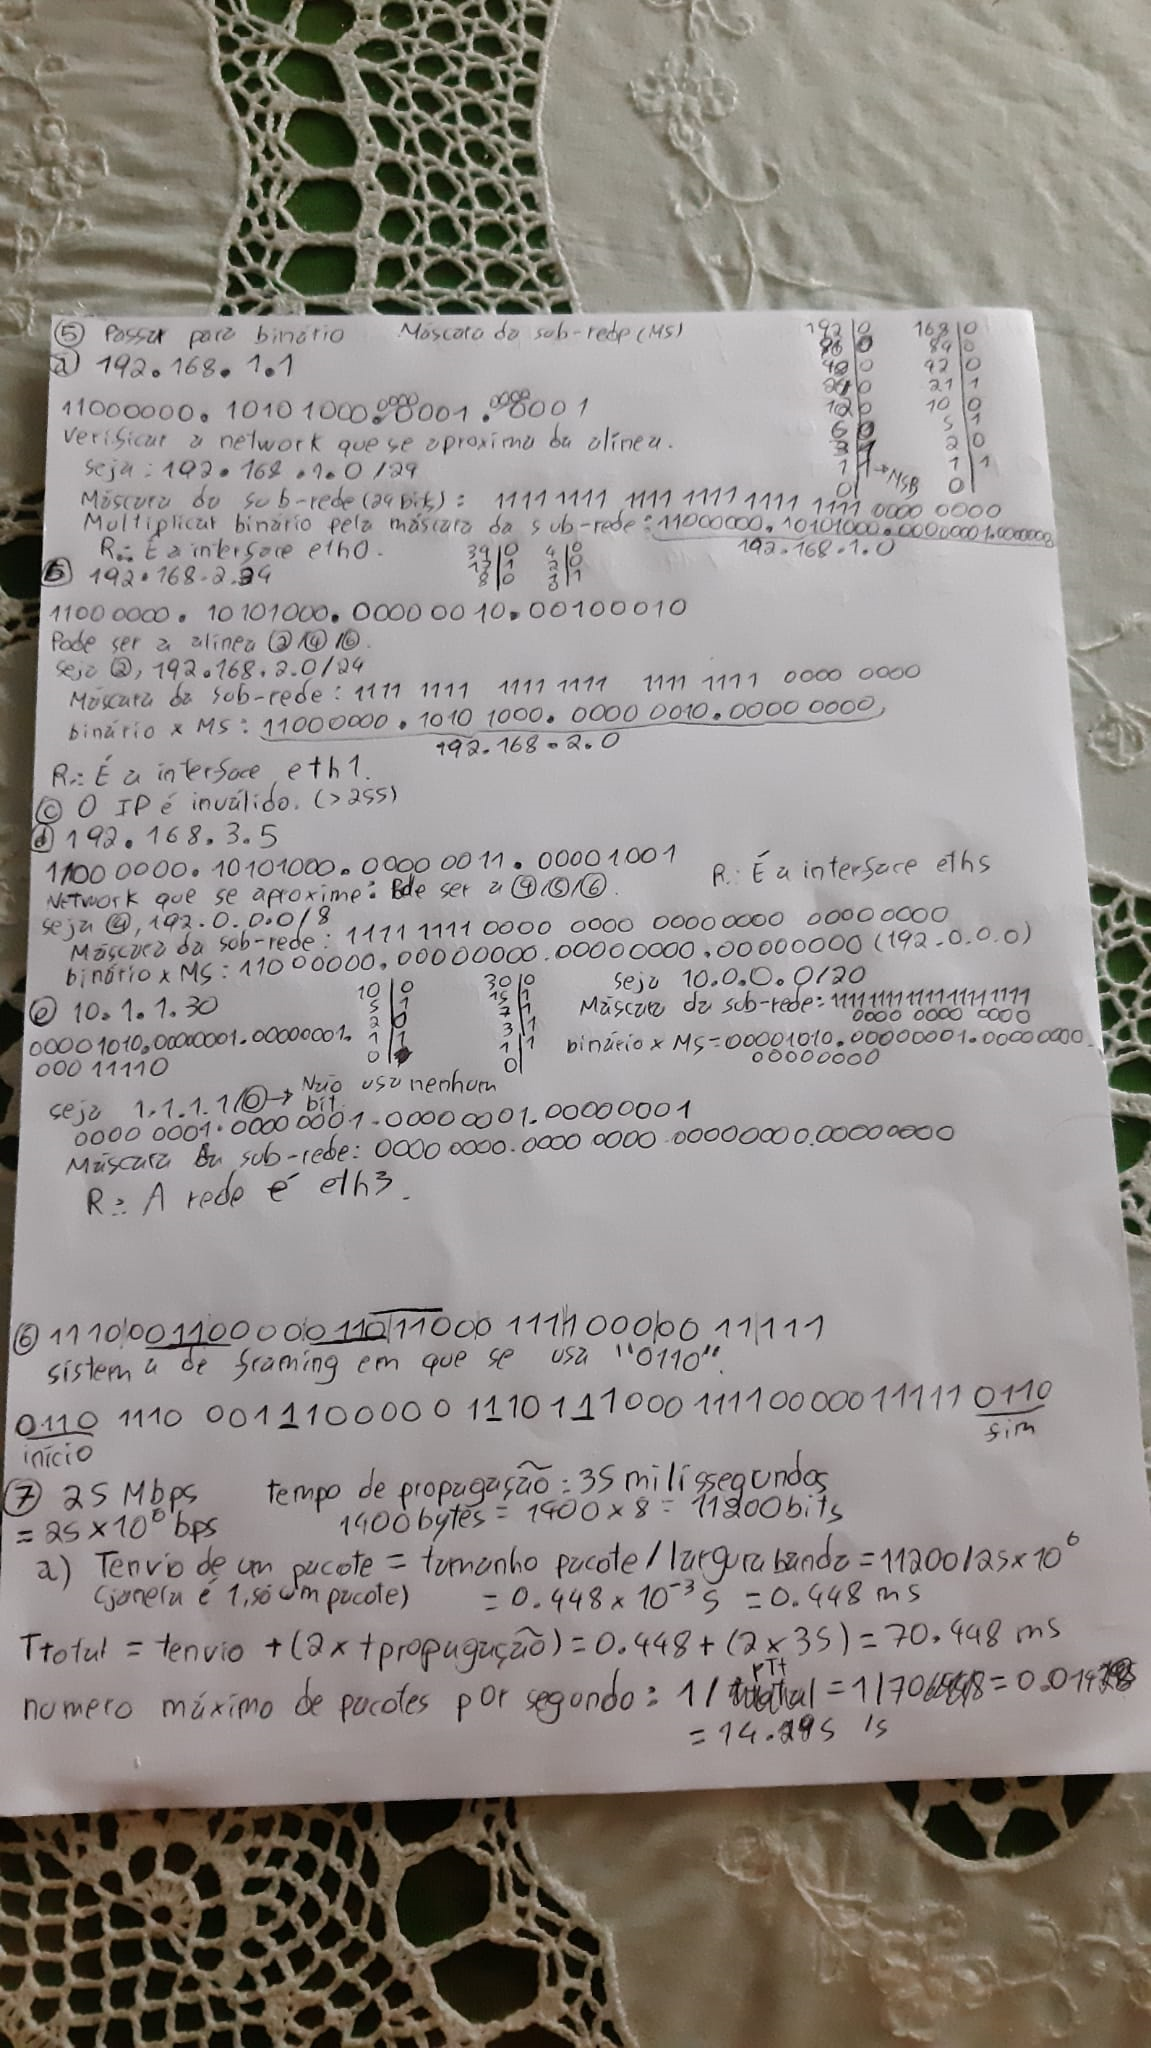 ⑤ Passar para binário Máscara da sub-rede (MS)
192|0 168|0
96|0 84|0
48|0 42|0
24|0 21|1
12|0 10|0
6|0 5|1
3|1 2|0
1|1→MSB 1|1
0| 0|
ⓐ 192.168.1.1
11000000. 10101000.00000001.00000001
Verificar a network que se aproxima da alínea.
seja: 192.168.1.0/24
Máscara da sub-rede (24 bits): 11111111 1111 1111 1111 1111 0000 0000
Multiplicar binário pela máscara da sub-rede: 11000000.10101000.00000001.0000000
192.168.1.0
R.: É a interface eth0.
34|0 4|0
17|1 2|0
8|0 1|1
ⓑ 192.168.2.34
11000000. 10101000. 00000010. 00100010
Pode ser a alínea ②/④/⑥.
seja ②, 192.168.2.0/24
Máscara da sub-rede: 1111 1111 1111 1111 1111 1111 0000 0000
binário x MS: 11000000.1010 1000. 0000 0010.0000 0000,
192.168.2.0
R.: É a interface eth1.
ⓒ O IP é inválido. (>255)
ⓓ 192.168.3.5
1100 0000. 10101000. 0000 0011. 00001001
R.: É a interface eth5
Network que se aproxime: Pode ser a ④/⑤/⑥.
seja ④, 192.0.0.0/8
Máscara da sub-rede: 1111 1111 0000 0000 00000000 00000000
binário x MS: 11000000.00000000.00000000.00000000 (192.0.0.0)
ⓔ 10.1.1.30
10|0 30|0
5|1 15|1
2|0 7|1
1|1 3|1
0| 1|1
0|
00001010.00000001.00000001.
00011110
seja 10.0.0.0/20
Máscara da sub-rede: 11111111111111111111
0000 0000 0000
binário x MS=00001010.00000001.00000000.
00000000
seja 1.1.1.1/⓪→ Não usa nenhum
bit.
0000 0001.0000 0001.00000001.00000001
Máscara da sub-rede: 0000 0000.0000 0000.00000000.00000000
R.: A rede é eth3.
⑥ 1110|001100000|0110|11000 1111|10000|00 11|111
sistema de framing em que se usa "0110".
0110 1110 001110000 0 1110111000 1111100000 11111 0110
início fim
⑦ 25 Mbps tempo de propagação: 35 milissegundos
= 25 x 10⁶ bps 1400bytes = 1400 x 8 = 11200bits
a) Tenvio de um pacote = tamanho pacote / largura banda = 11200/25x10⁶
(janela é 1, só um pacote) = 0.448 x 10⁻³ s = 0.448 ms
Ttotal = tenvio + (2 x tpropagação) = 0.448 + (2 x 35) = 70.448 ms
numero máximo de pacotes por segundo: 1/